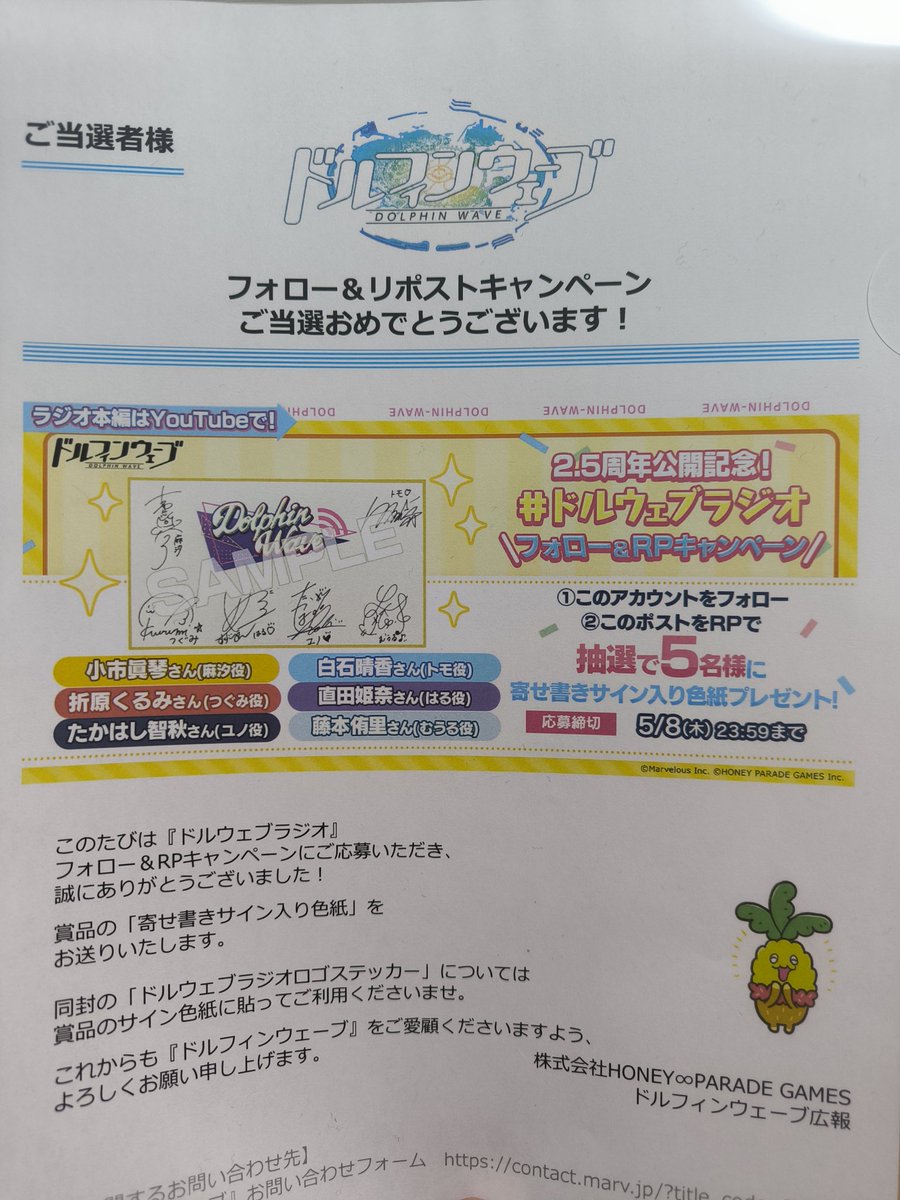 ご当選者様
ドルフィンウェーブ
DOLPHIN WAVE
フォロー＆リポストキャンペーン
ご当選おめでとうございます！
ラジオ本編はYouTubeで!
DOLPHIN-WAVE
DOLPHIN-WAVE
DOLPHIN-WAVE
ドルフィンウェーブ
DOLPHIN WAVE
Dolphin
Wave
SAMPLE
トモ
麻汐
Kurumi
つぐみ
はる
ユノ
むうる
2.5周年公開記念!
#ドルウェブラジオ
\フォロー&RPキャンペーン/
小市眞琴さん(麻汐役)
白石晴香さん(トモ役)
折原くるみさん(つぐみ役)
直田姫奈さん(はる役)
たかはし智秋さん(ユノ役)
藤本侑里さん(むうる役)
①このアカウントをフォロー
②このポストをRPで
抽選で5名様に
寄せ書きサイン入り色紙プレゼント!
応募締切 5/8(木) 23:59まで
©Marvelous Inc. ©HONEY PARADE GAMES Inc.
このたびは『ドルウェブラジオ』
フォロー＆RPキャンペーンにご応募いただき、
誠にありがとうございました！
賞品の「寄せ書きサイン入り色紙」を
お送りいたします。
同封の「ドルウェブラジオロゴステッカー」については
賞品のサイン色紙に貼ってご利用くださいませ。
これからも『ドルフィンウェーブ』をご愛顧くださいますよう、
よろしくお願い申し上げます。
株式会社HONEY∞PARADE GAMES
ドルフィンウェーブ広報
するお問い合わせ先】
ブ』お問い合わせフォーム https://contact.marv.jp/?title_cod